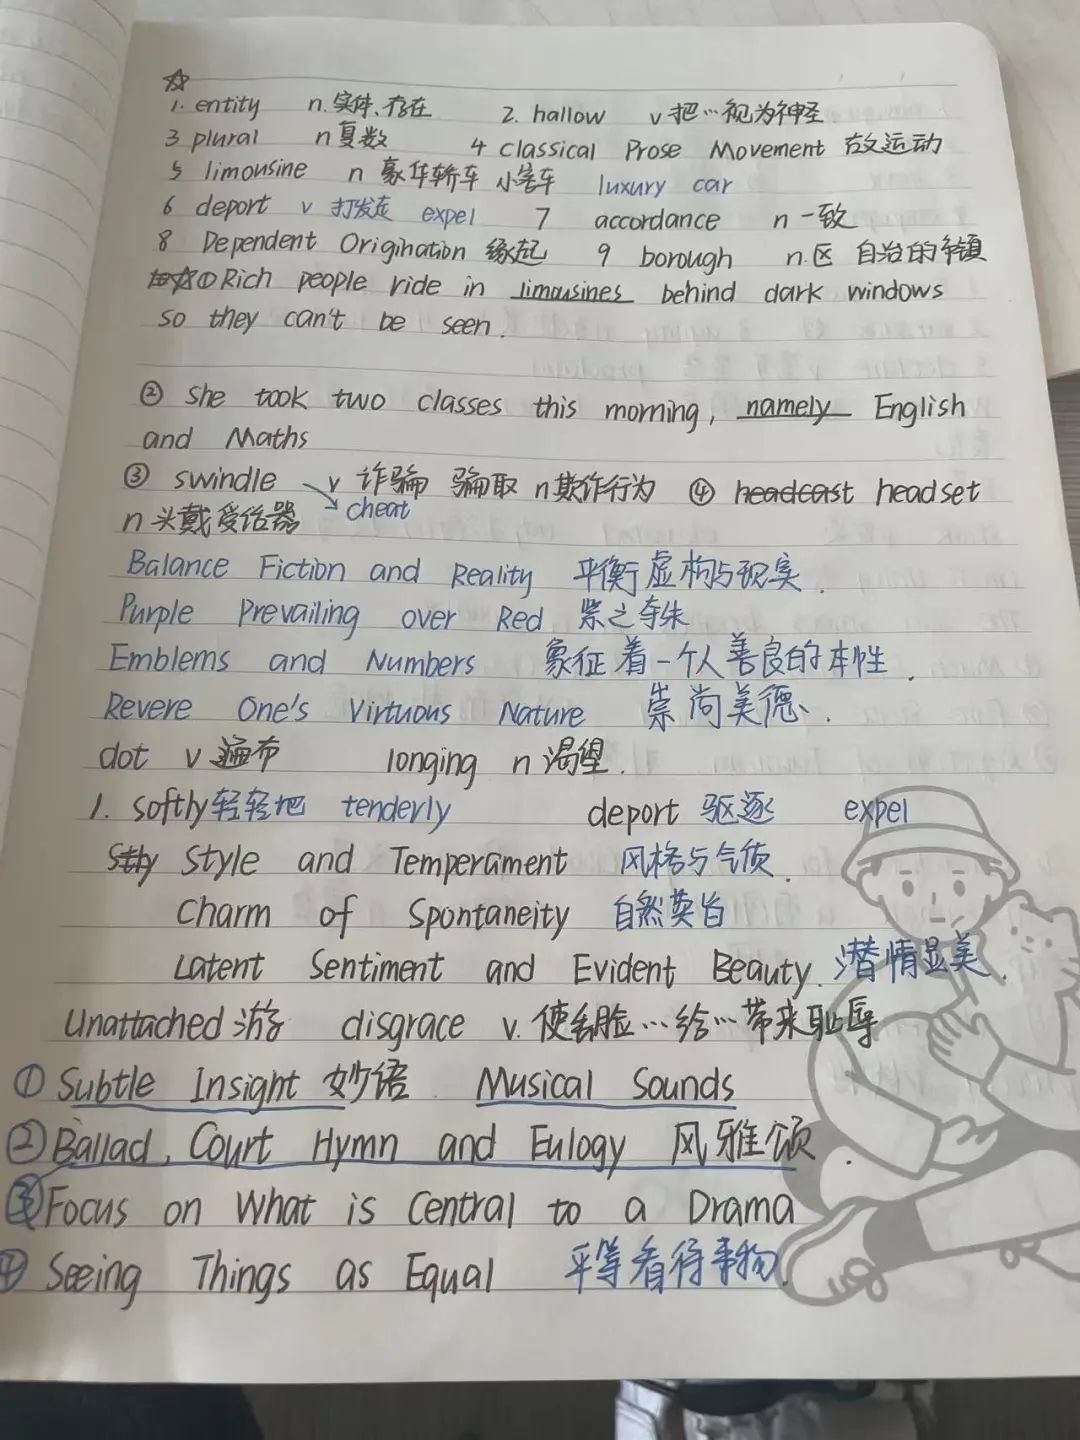 ☆
1. entity n. 实体、存在 2. hallow v 把…视为神圣
3 plural n 复数 4 classical Prose Movement 古文运动
5 limousine n 豪华轿车 小客车 luxury car
6 deport v 打发走 expel 7 accordance n 一致
8 Dependent Origination 缘起 9 borough n.区 自治的市镇
①Rich people ride in limousines behind dark windows
so they can't be seen.
② She took two classes this morning, namely English
and Maths
③ swindle v 诈骗 骗取 n欺诈行为 ④ headcast headset
n 头戴受话器 → cheat
Balance Fiction and Reality 平衡虚构与现实.
Purple Prevailing over Red 紫之夺朱
Emblems and Numbers 象征着一个人善良的本性.
Revere One's Virtuous Nature 崇尚美德.
dot v 遍布 longing n 渴望.
1. softly轻轻地 tenderly deport 驱逐 expel
Style and Temperament 风格与气质.
Charm of Spontaneity 自然英旨
Latent Sentiment and Evident Beauty. 潜情显美.
Unattached 游 disgrace v. 使丢脸…给…带来耻辱
① Subtle Insight 妙语. Musical Sounds
② Ballad, Court Hymn and Eulogy 风雅颂.
③ Focus on What is Central to a Drama
④ Seeing Things as Equal 平等看待事物.